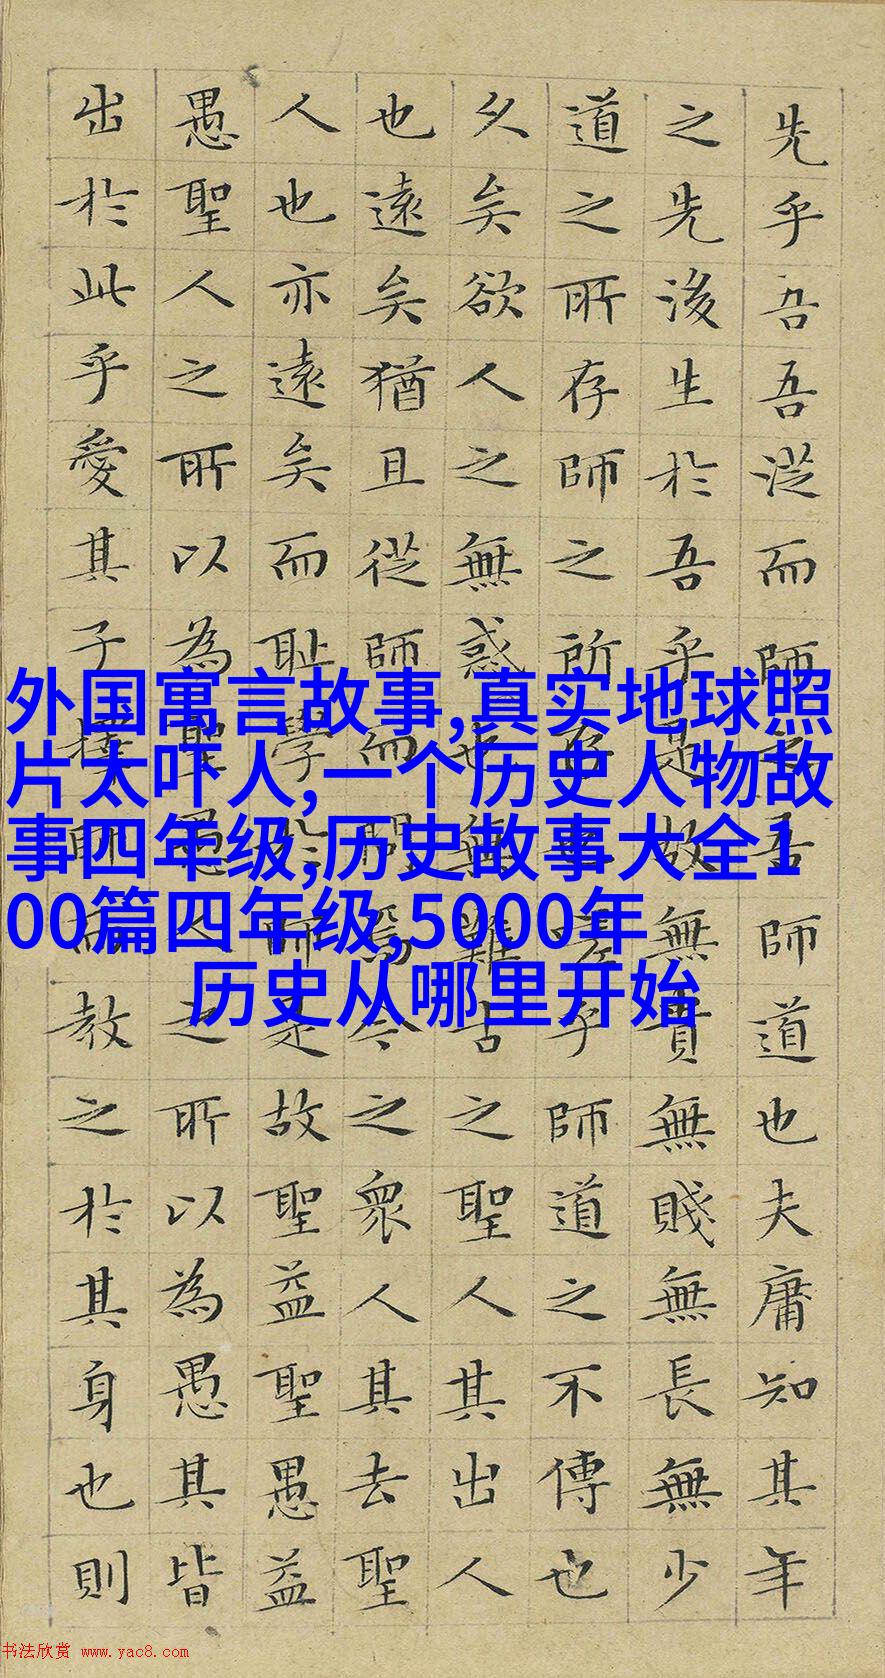 先乎吾吾從而師之吾師道也夫庸知其年
之先後生於吾乎是故無貴無賤無長無少
道之所存師之所存也嗟乎師道之不傳也
久矣欲人之無惑也難古之聖人其出人
也遠矣猶且從師而問焉今之衆人其去聖
人也亦遠矣而恥學於師是故聖益聖愚益
愚聖人之所以為聖愚人之所以為愚其皆
出於此乎愛其子擇師而教之於其身也則
外国寓言故事,真实地球照
片太吓人,一个历史人物故
事四年级,历史故事大全1
00篇四年级,5000年
历史从哪里开始
书法欣赏 www.yac8.com